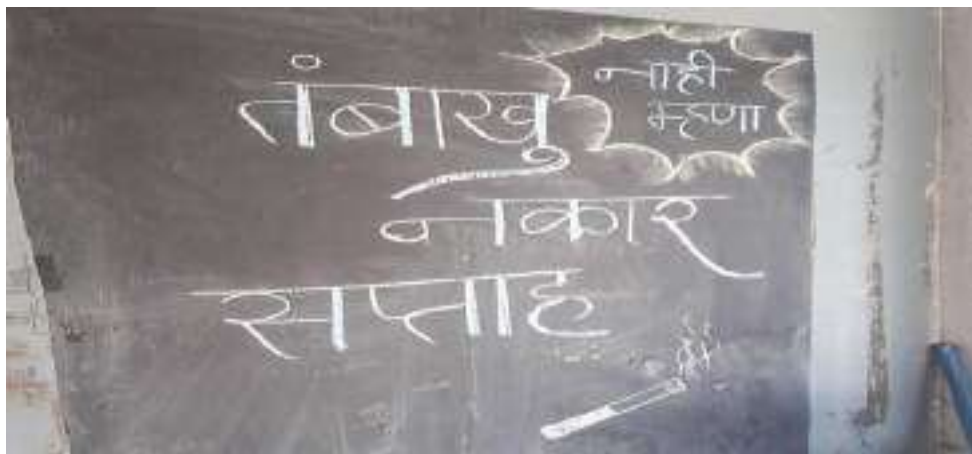 तंबाखु
नाही
म्हणा
नकार
सप्ताह